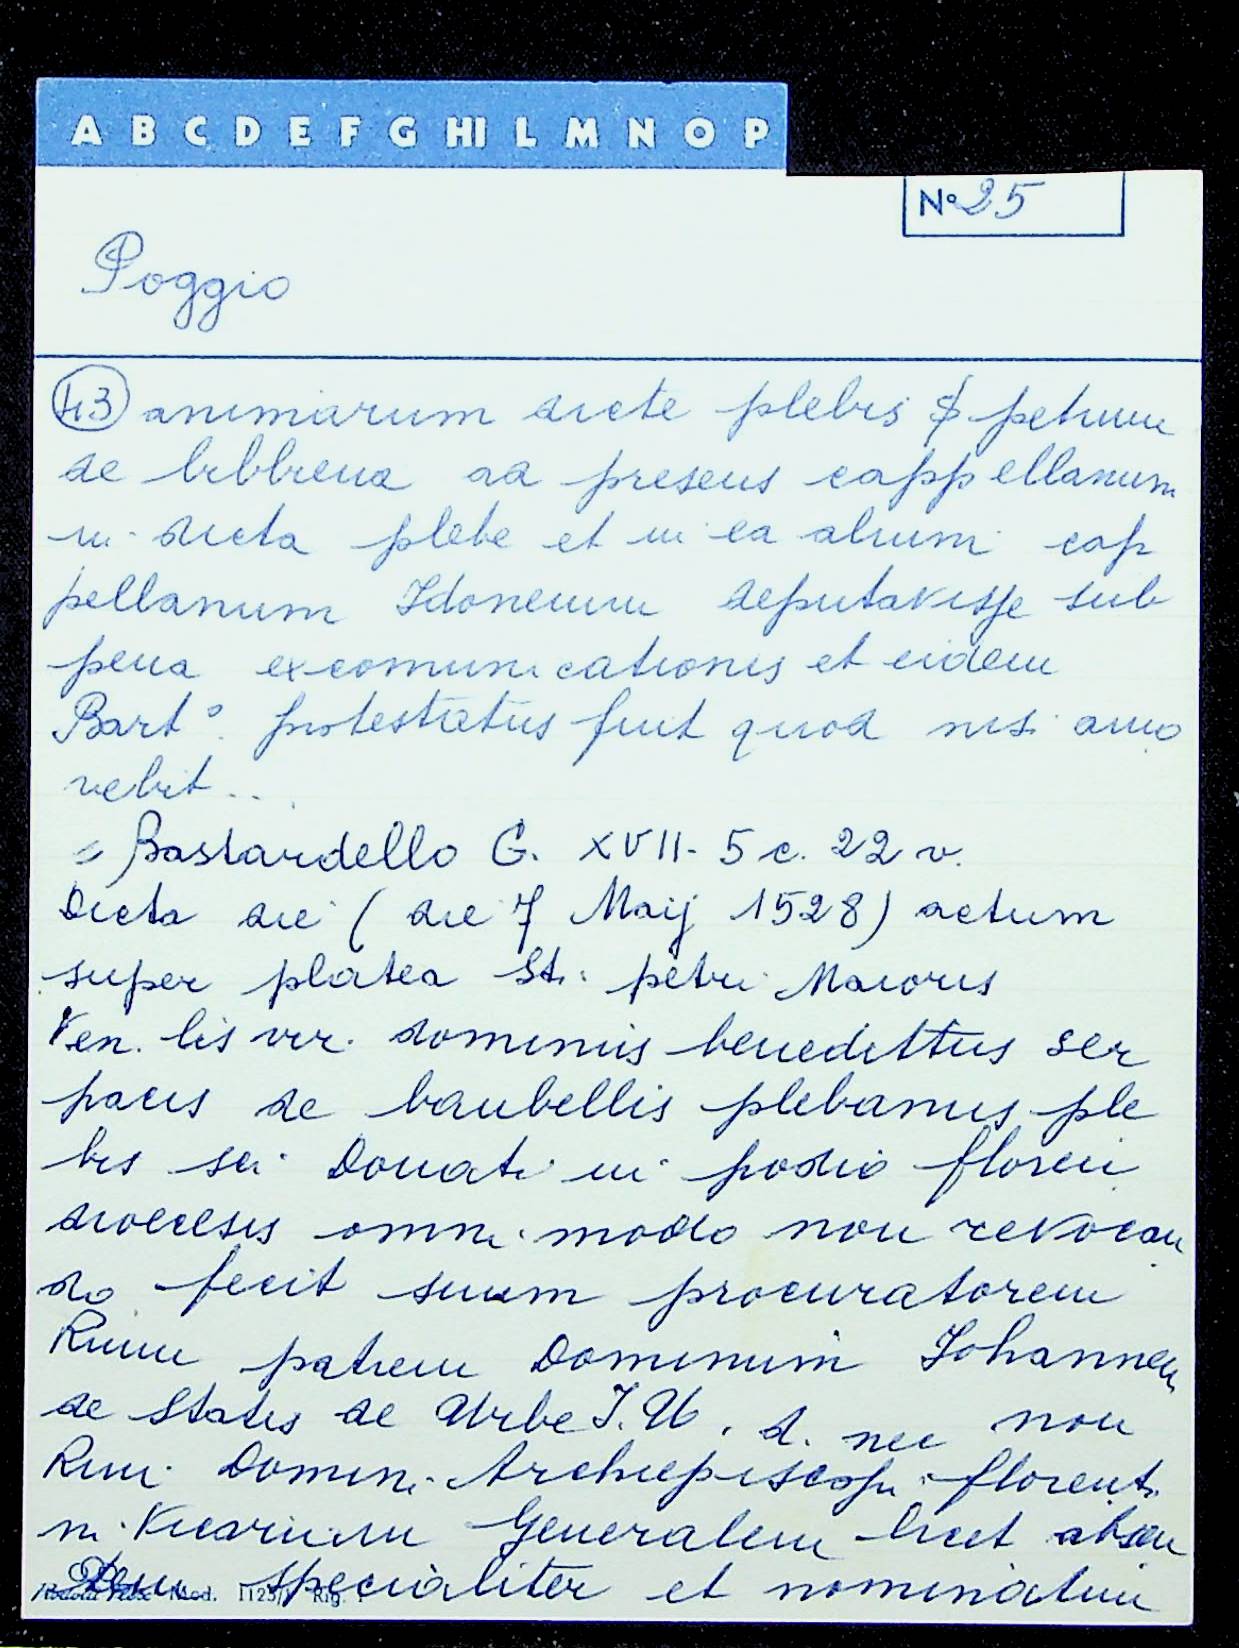 A B C D E F G HI L M N O P
N° 25
Poggio
43 animarum dicte plebis petrum
de bibbiena ad presens cappellanum
in dicta plebe et in ea alium cap
pellanum Idoneum deputavisse sub
pena excomunicationis et eidem
Bart°. protestatus fuit quod nisi amo
vebit...
Bastardello G. XVII- 5 c. 22 v.
Dicta die (die 7 Maij 1528) actum
super platea Sti. petri Maioris
Ven. lis vir. dominus benedittus ser
pacis de baubellis plebanus ple
bis sci Donati in podio floren
diocesis omni modo non revocan
do fecit suum procuratorem
Rmum patrem Dominum Johannem
de Statis de Urbe J. U. d. nec non
Rmi Domini Archiepiscopi florenti
ni Vicarium Generalem licet absen
tem specialiter et nominatim
Mod. 1125/